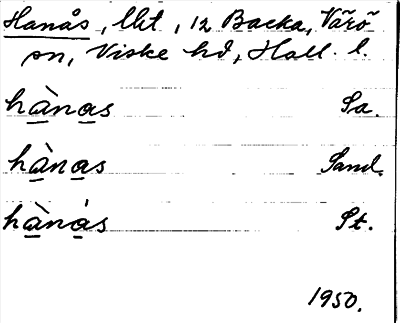 Hanås, lkt, 12 Backa, Värö
sn, Viske hd, Hall. l.
hànas Sa.
hànas Sand.
hànȧs St.
1950.